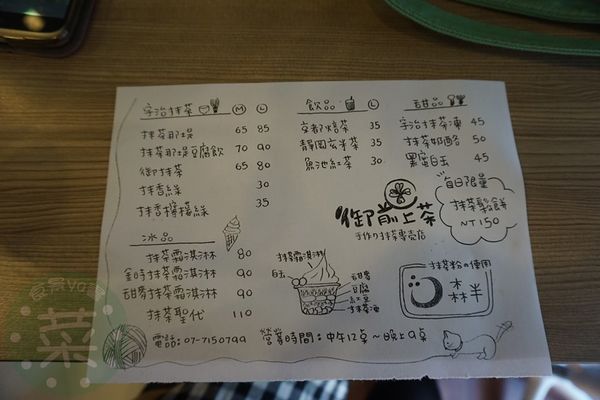 宇治抹茶 M L
抹茶那堤 65 85
抹茶那堤豆腐飲 70 90
御抹茶 65 80
抹香綠 30
抹香檸檬綠 35
冰品
抹茶霜淇淋 80
金時抹茶霜淇淋 90
甜麥抹茶霜淇淋 90
抹茶聖代 110
飲品 L
京都焙茶 35
靜岡玄米茶 35
魚池紅茶 30
甜品
宇治抹茶凍 45
抹茶奶酪 50
黑蜜白玉 45
每日限量
抹茶鬆餅
NT150
御前上茶
手作り抹茶專売店
抹茶霜淇淋
白玉
甜麥
豆腐
紅豆
抹茶凍
抹茶粉の使用
森半
電話：07-7150799 營業時間：中午12點～晚上9點
食尚yo寶
菜